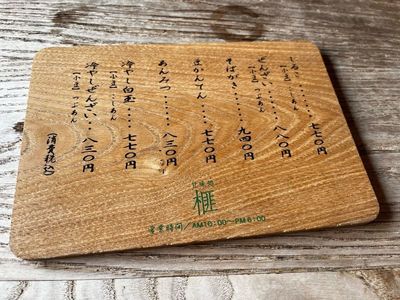 しるこ・・・・・七七〇円
(小豆)こしあん
ぜんざい・・・八八〇円
(小豆)つぶあん
そばがき・・・・九四〇円
まかんてん・・・七七〇円
あんみつ・・・・八三〇円
冷やし白玉・・・七七〇円
(小豆)こしあん
冷やしぜんざい・・八三〇円
(小豆)つぶあん
(消費税込)
甘味処
榧
営業時間／AM10:00〜PM6:00